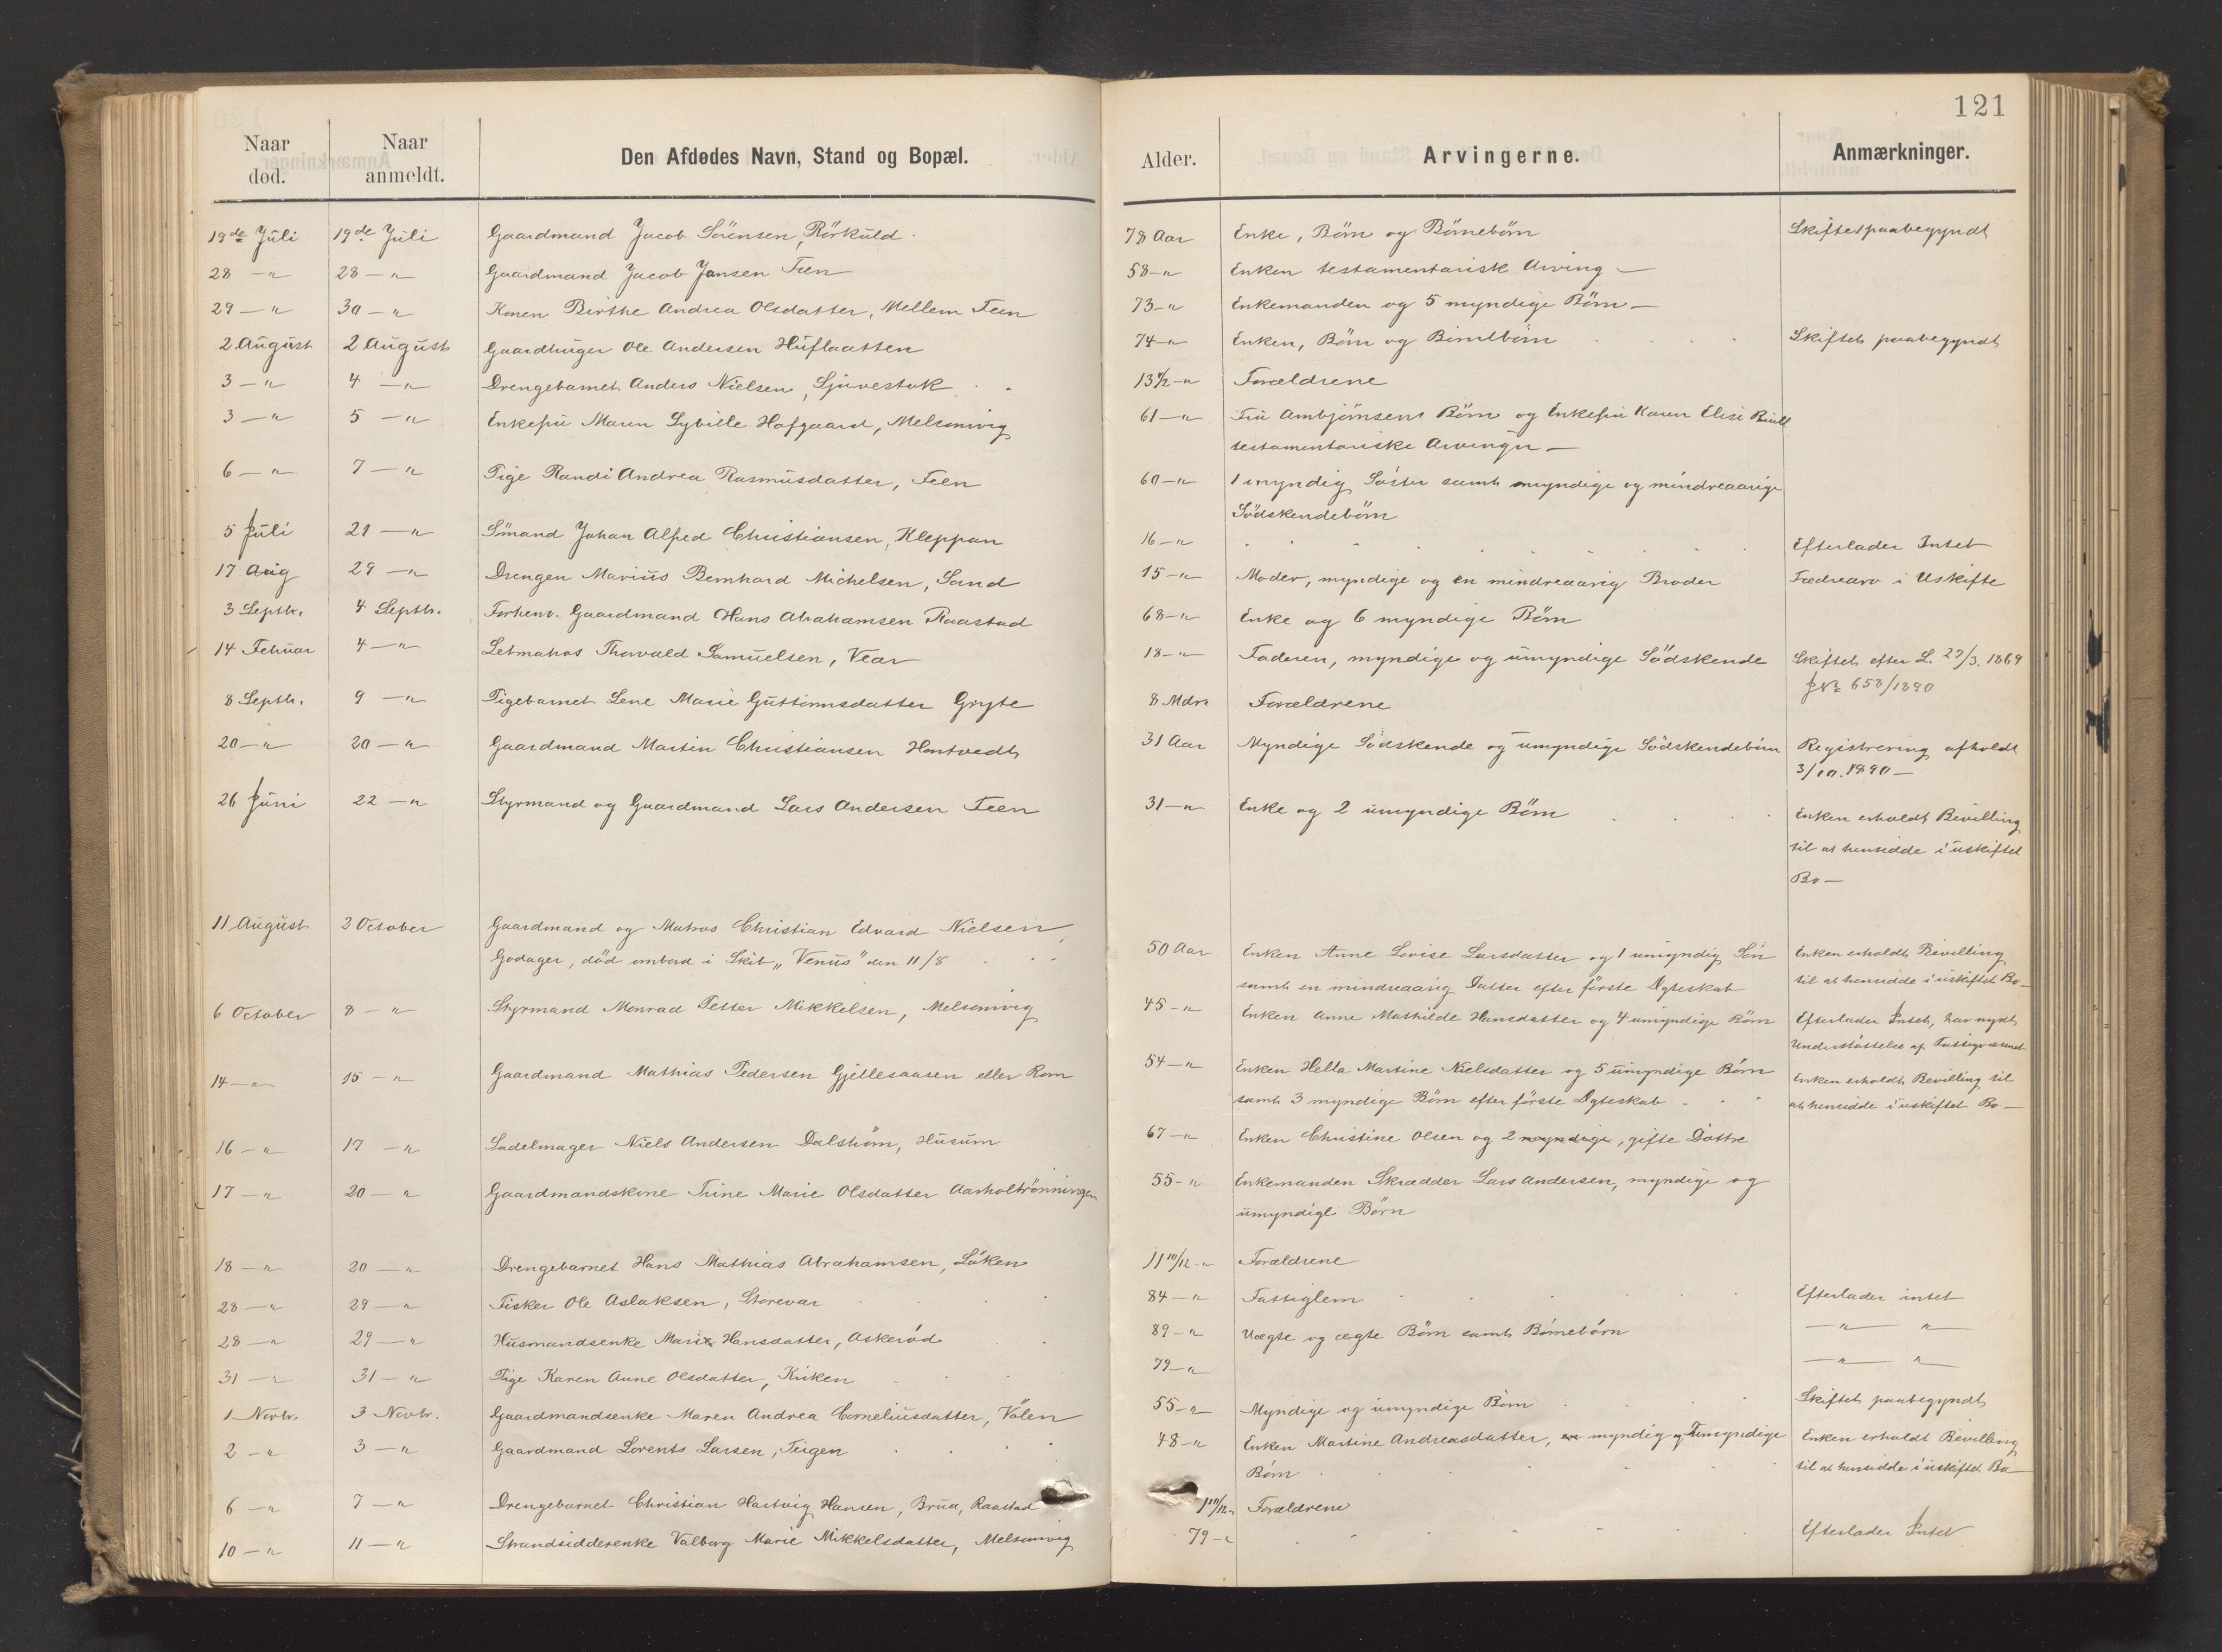 121
Naar død. Naar anmeldt. Den Afdødes Navn, Stand og Bopæl. Alder. Arvingerne. Anmærkninger.
19de Juli 19de Juli Gaardmand Jacob Sörensen, Rörkuld 78 Aar Enke, Börn og Börnebörn Skiftet paabegyndt
28 — " 28 — " Gaardmand Jacob Jansen Feen 58 — " Enken testamentarisk Arving —
29 — " 30 — " Konen Birthe Andrea Olsdatter, Mellem Feen 73 — " Enkemanden og 5 myndige Börn —
2 August 2 August Gaardbruger Ole Andersen Huflaatten 74 — " Enken, Börn og Börnebörn Skiftet paabegyndt
3 — " 4 — " Drengebarnet Anders Nielsen, Sjuvestok Forældrene
3 — " 5 — " Enkefru Maren Sybille Hofgaard, Melsomvig 61 — " Fru Ambjörnsens Börn og Enkefru Karen Elise
testamentariske Arvinger —
6 — " 7 — " Pige Randi Andrea Rasmusdatter, Feen 60 — " 1 myndig Söster samt myndige og mindreaarige
Södskendebörn
5 Juli 21 — " Sömand Johan Alfred Christiansen, Kleppan 16 — " Efterlader Intet
17 Aug 29 — " Drengen Marius Bernhard Michelsen, Sand 15 — " Moder, myndige og en mindreaarig Broder Fædrearv i Uskifte
3 Septbr. 4 Septb. Forhenv. Gaardmand Hans Abrahamsen Raastad 68 — " Enke og 6 myndige Börn
14 Februar 4 — " Letmatros Thorvald Samuelsen, Vear 18 — " Faderen, myndige og umyndige Södskende Skiftet efter L. 27/3. 1869
J№ 658/1890
8 Septb. 9 — " Pigebarnet Lene Marie Guttormsdatter Gryte 8 Mdr. Forældrene
20 — " 20 — " Gaardmand Martin Christiansen Hontvedt 31 Aar Myndige Södskende og umyndige Södskendebörn Registrering afholdt
3/10. 1890 —
26 Juni 22 — " Styrmand og Gaardmand Lars Andersen Feen 31 — " Enke og 2 umyndige Börn Enken erholdt Bevilling
til at hensidde i uskiftet
Bo —
11 August 2 October Gaardmand og Matros Christian Edvard Nielsen,
Godager, död ombord i Skib „Venus" den 11/8 50 Aar Enken Anne Lovise Larsdatter og 1 umyndig Sön Enken erholdt Bevilling
samt en mindreaarig Datter efter förste Ægteskab til at hensidde i uskiftet Bo —
6 October 8 — " Styrmand Monrad Petter Mikkelsen, Melsomvig 45 — " Enken Anne Mathilde Hansdatter og 4 umyndige Börn Efterlader Intet, har nydt
Understöttelse af Fattigvæsenet
14 — " 15 — " Gaardmand Mathias Pedersen Gjellesaasen eller Rom 54 — " Enken Hella Martine Nielsdatter og 5 umyndige Börn Enken erholdt Bevilling til
samt 3 myndige Börn efter förste Ægteskab at hensidde i uskiftet Bo —
16 — " 17 — " Sadelmager Niels Andersen Dalström, Husum 67 — " Enken Christine Olsen og 2 myndige, gifte Döttre
17 — " 20 — " Gaardmandskone Trine Marie Olsdatter Aarholtrönningen 55 — " Enkemanden Skrædder Lars Andersen, myndige og
umyndige Börn
18 — " 20 — " Drengebarnet Hans Mathias Abrahamsen, Löken 11 10/12 — " Forældrene
28 — " 29 — " Fisker Ole Aslaksen, Storevar 84 — " Fattiglem Efterlader intet
28 — " 29 — " Husmandsenke Marie Hansdatter, Askeröd 89 — " Uægte og ægte Börn samt Börnebörn — " — "
31 — " 31 — " Pige Karen Anne Olsdatter, Kirken 79 — " — " — "
1 Novbr. 3 Novbr. Gaardmandsenke Maren Andrea Corneliusdatter, Völen 55 — " Myndige og umyndige Börn Skiftet paabegyndt
2 — " 3 — " Gaardmand Lorents Larsen, Teigen 48 — " Enken Martine Andreasdatter, myndig og umyndige Enken erholdt Bevilling
Börn til at hensidde i uskiftet Bo —
6 — " 7 — " Drengebarnet Christian Hartvig Hansen, Brua, Raastad 1 10/12 " Forældrene
10 — " 11 — " Strandsidderenke Valborg Marie Mikkelsdatter, Melsomvig 79 — " Efterlader Intet